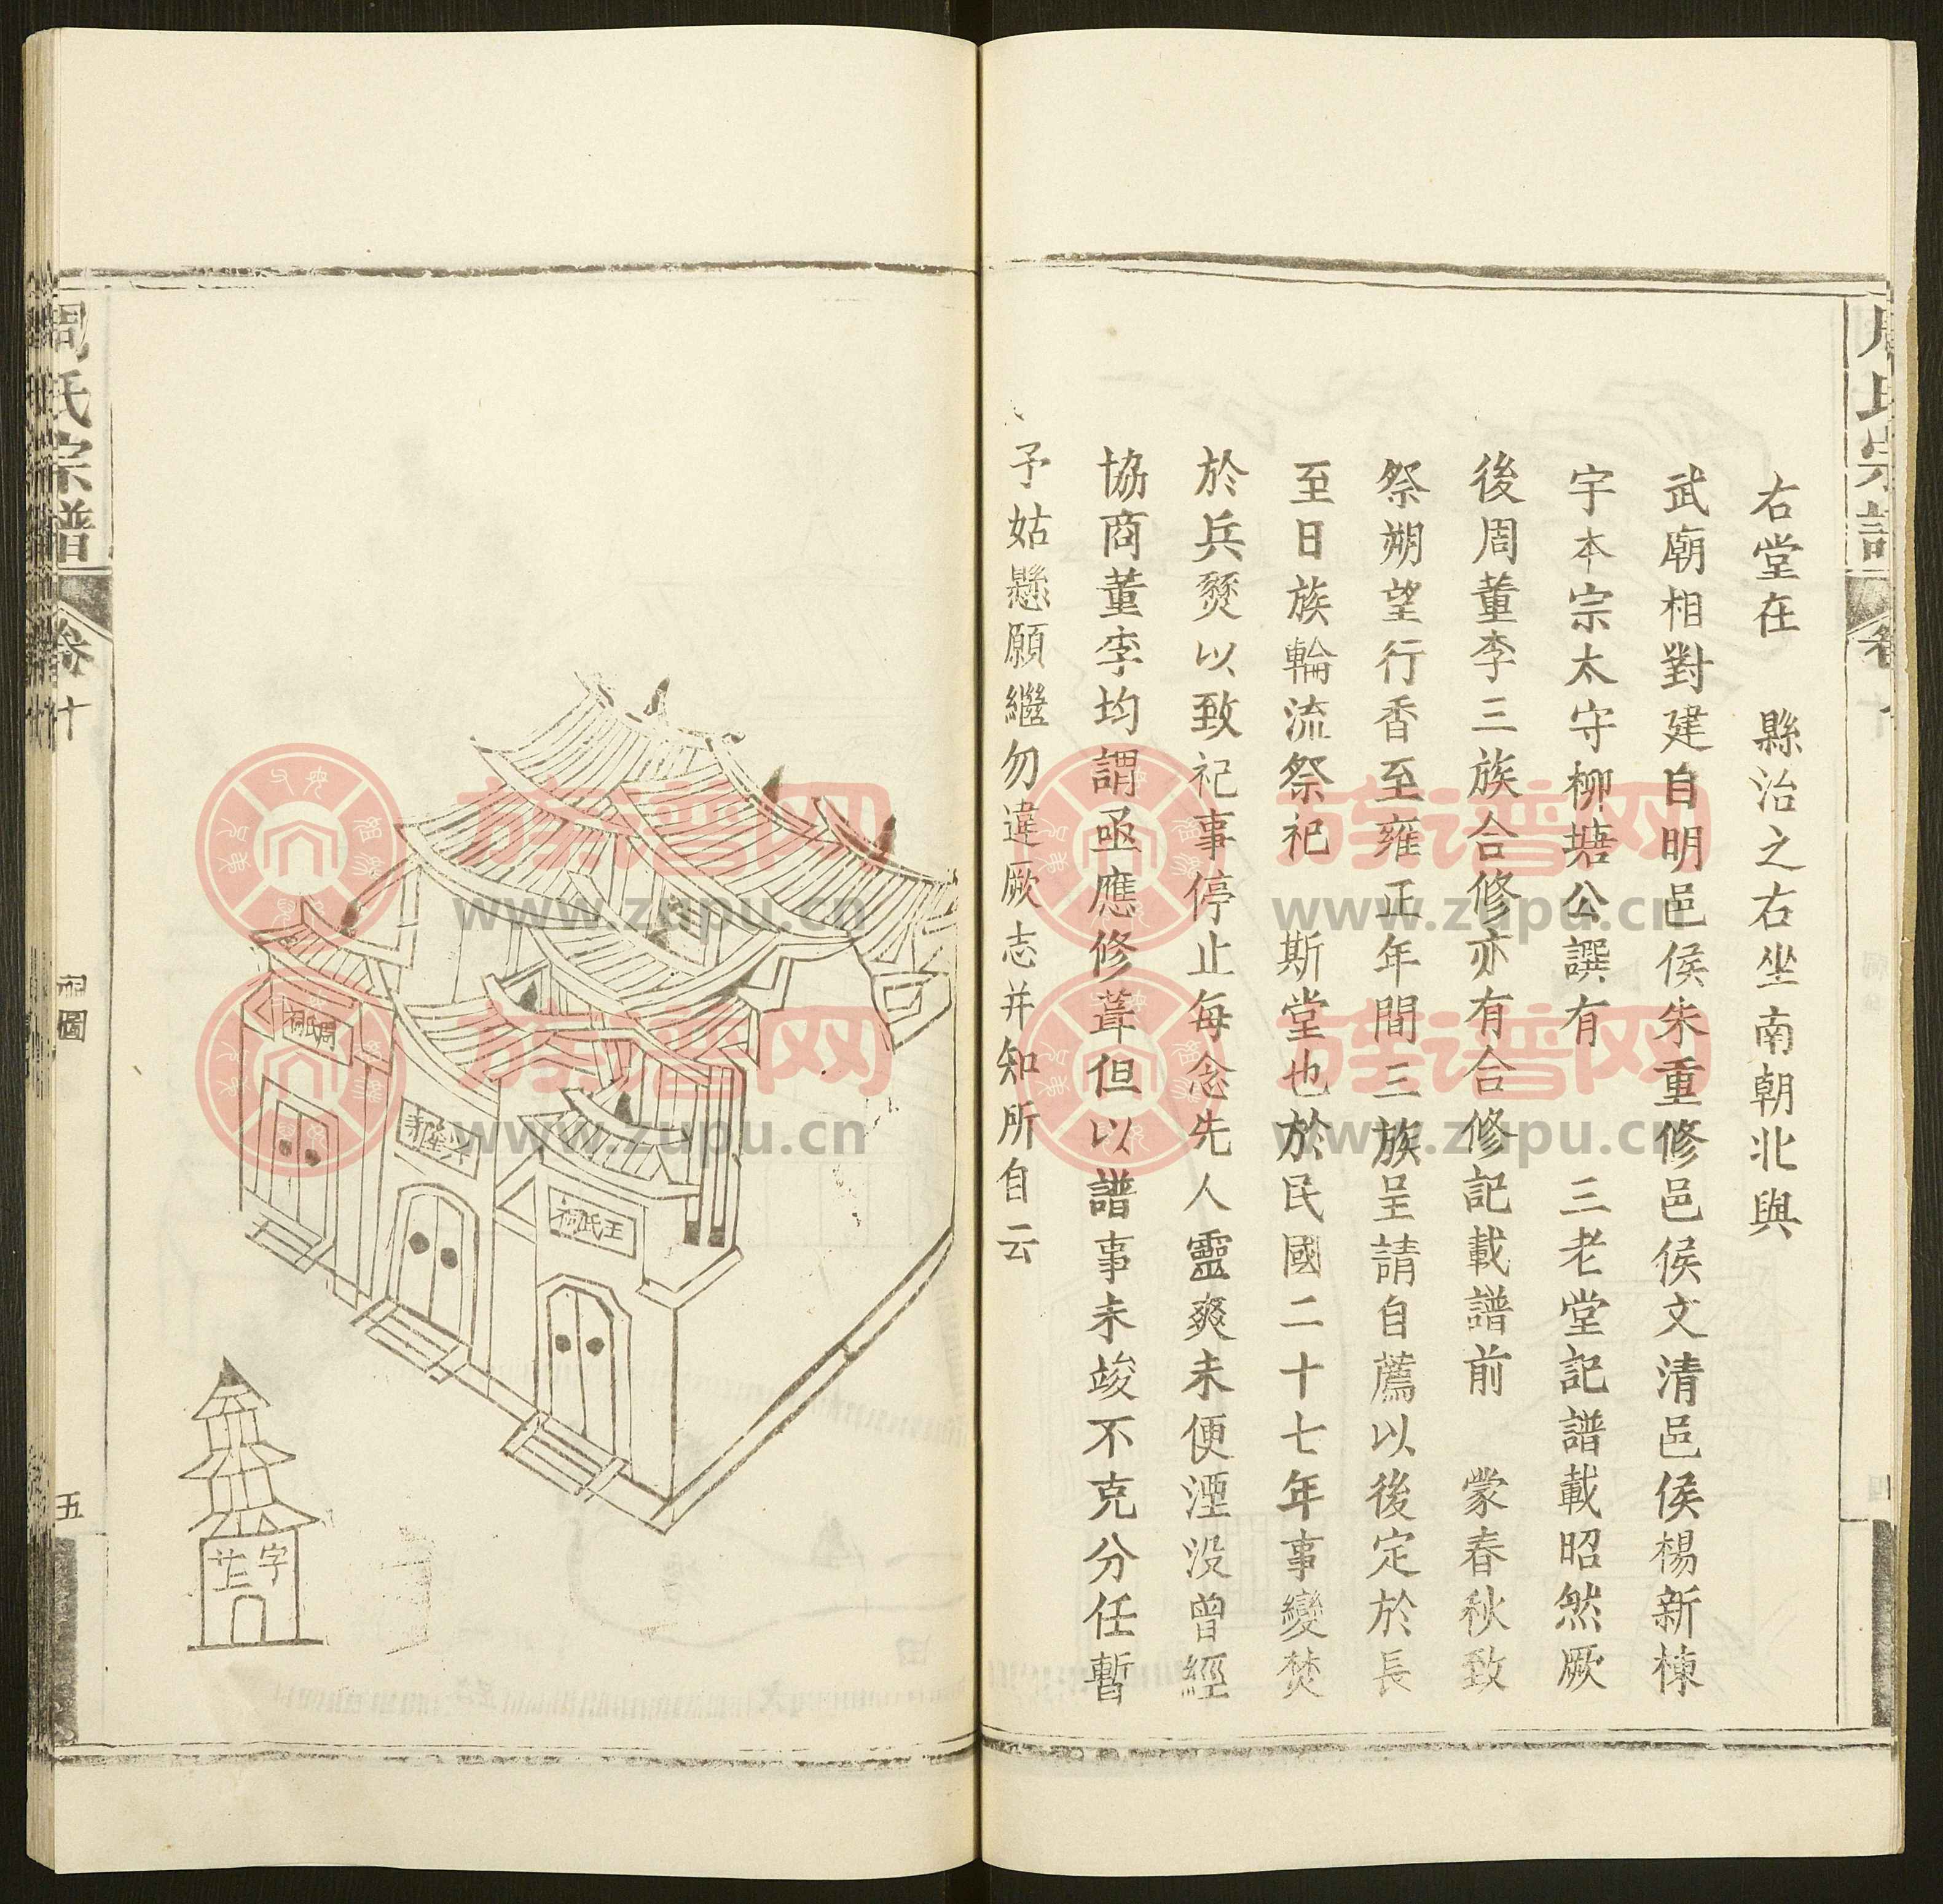 周氏宗譜
右堂在 縣治之右坐南朝北與
武廟相對建自明邑侯朱重修邑侯文清邑侯楊新棟
宇本宗太守柳塘公譔有 三老堂記譜載昭然厥
後周董李三族合修亦有合修記載譜前 蒙春秋致
祭朔望行香至雍正年間三族呈請自薦以後定於長
至日族輪流祭祀 斯堂也於民國二十七年事變焚
於兵燹以致祀事停止每念先人靈爽未便湮没曾經
協商董李均謂亟應修葺但以譜事未竣不克分任暫
予姑懸願繼勿違厥志并知所自云
王氏祠
周氏祠
字
周氏宗譜
卷十
祠圖
五
族谱网
www.zupu.cn
族谱网
www.zupu.cn
族谱网
www.zupu.cn
族谱网
www.zupu.cn